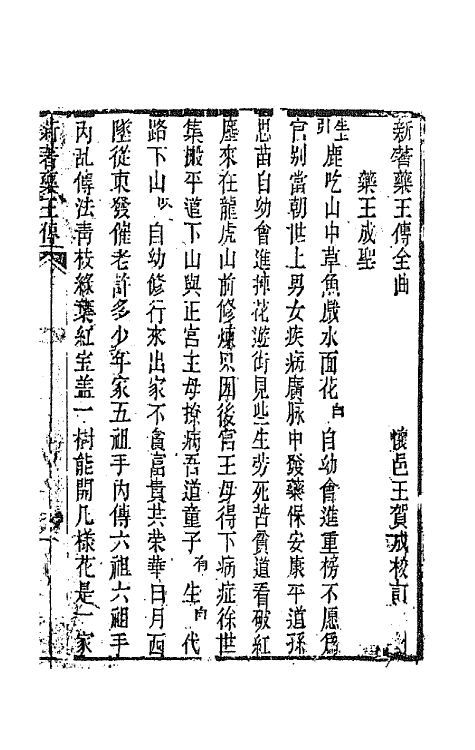 新著藥王傳全曲　懷邑王賀成校訂
藥王成聖
生引鹿吃山中草魚戲水面花白自幼會進重榜不愿爲
官別當朝世上男女疾病廣脉中發藥保安康平道孫
思苗自幼會進揀花遊街見些生勞死苦貧道看破紅
塵來在龍虎山前修煉只因後宮王母得下病症徐世
集搬平道下山與正宮主母撩病吾道童子有生白代
路下山自幼修行來出家不貪富貴共榮華日月西
墜從東發催老許多少年家五祖手內傳六祖六祖手
內乱傳法青枝綠葉紅宝盖一樹能開几樣花是一家
新著藥王傳